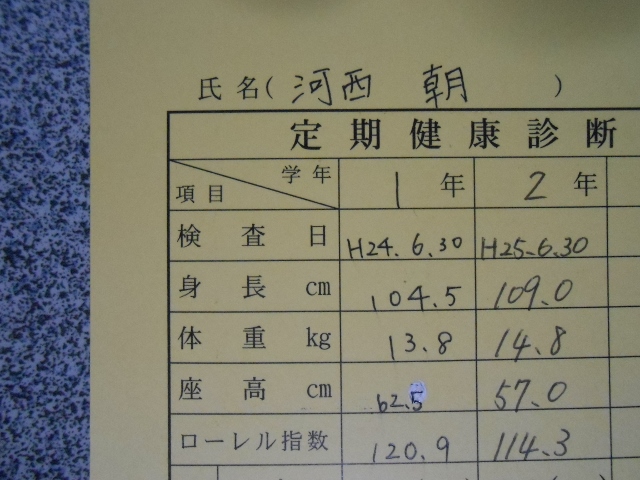 氏名(河西 朝)
定期健康診断
学年 項目 1年 2年
検査日 H24.6.30 H25.6.30
身長 cm 104.5 109.0
体重 kg 13.8 14.8
座高 cm 62.5 57.0
ローレル指数 120.9 114.3